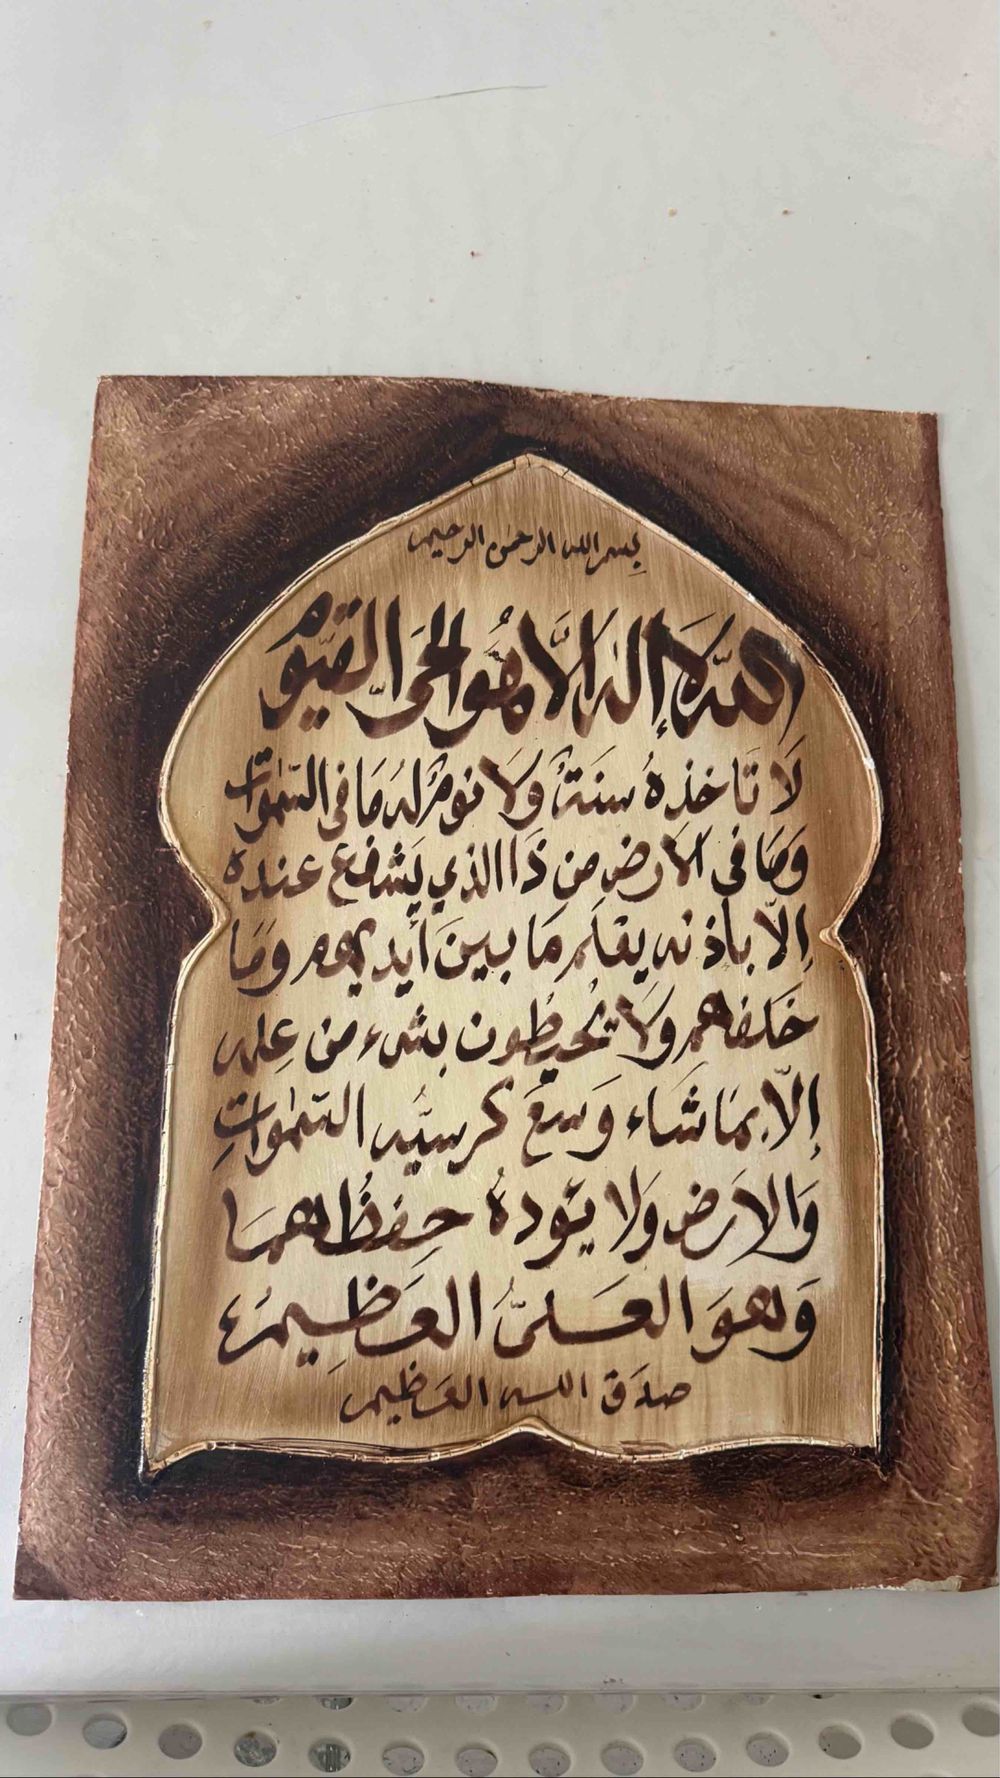 بسم الله الرحمن الرحيم
الله لا إله الا هو الحي القيوم
لا تاخذه سنة ولا نوم له ما في السموات
وما في الارض من ذا الذي يشفع عنده
إلا باذنه يعلم ما بين أيديهم وما
خلفهم ولا يحيطون بشيء من علمه
إلا بما شاء وسع كرسيه السموات
والارض ولا يئوده حفظهما
وهو العلي العظيم
صدق الله العظيم